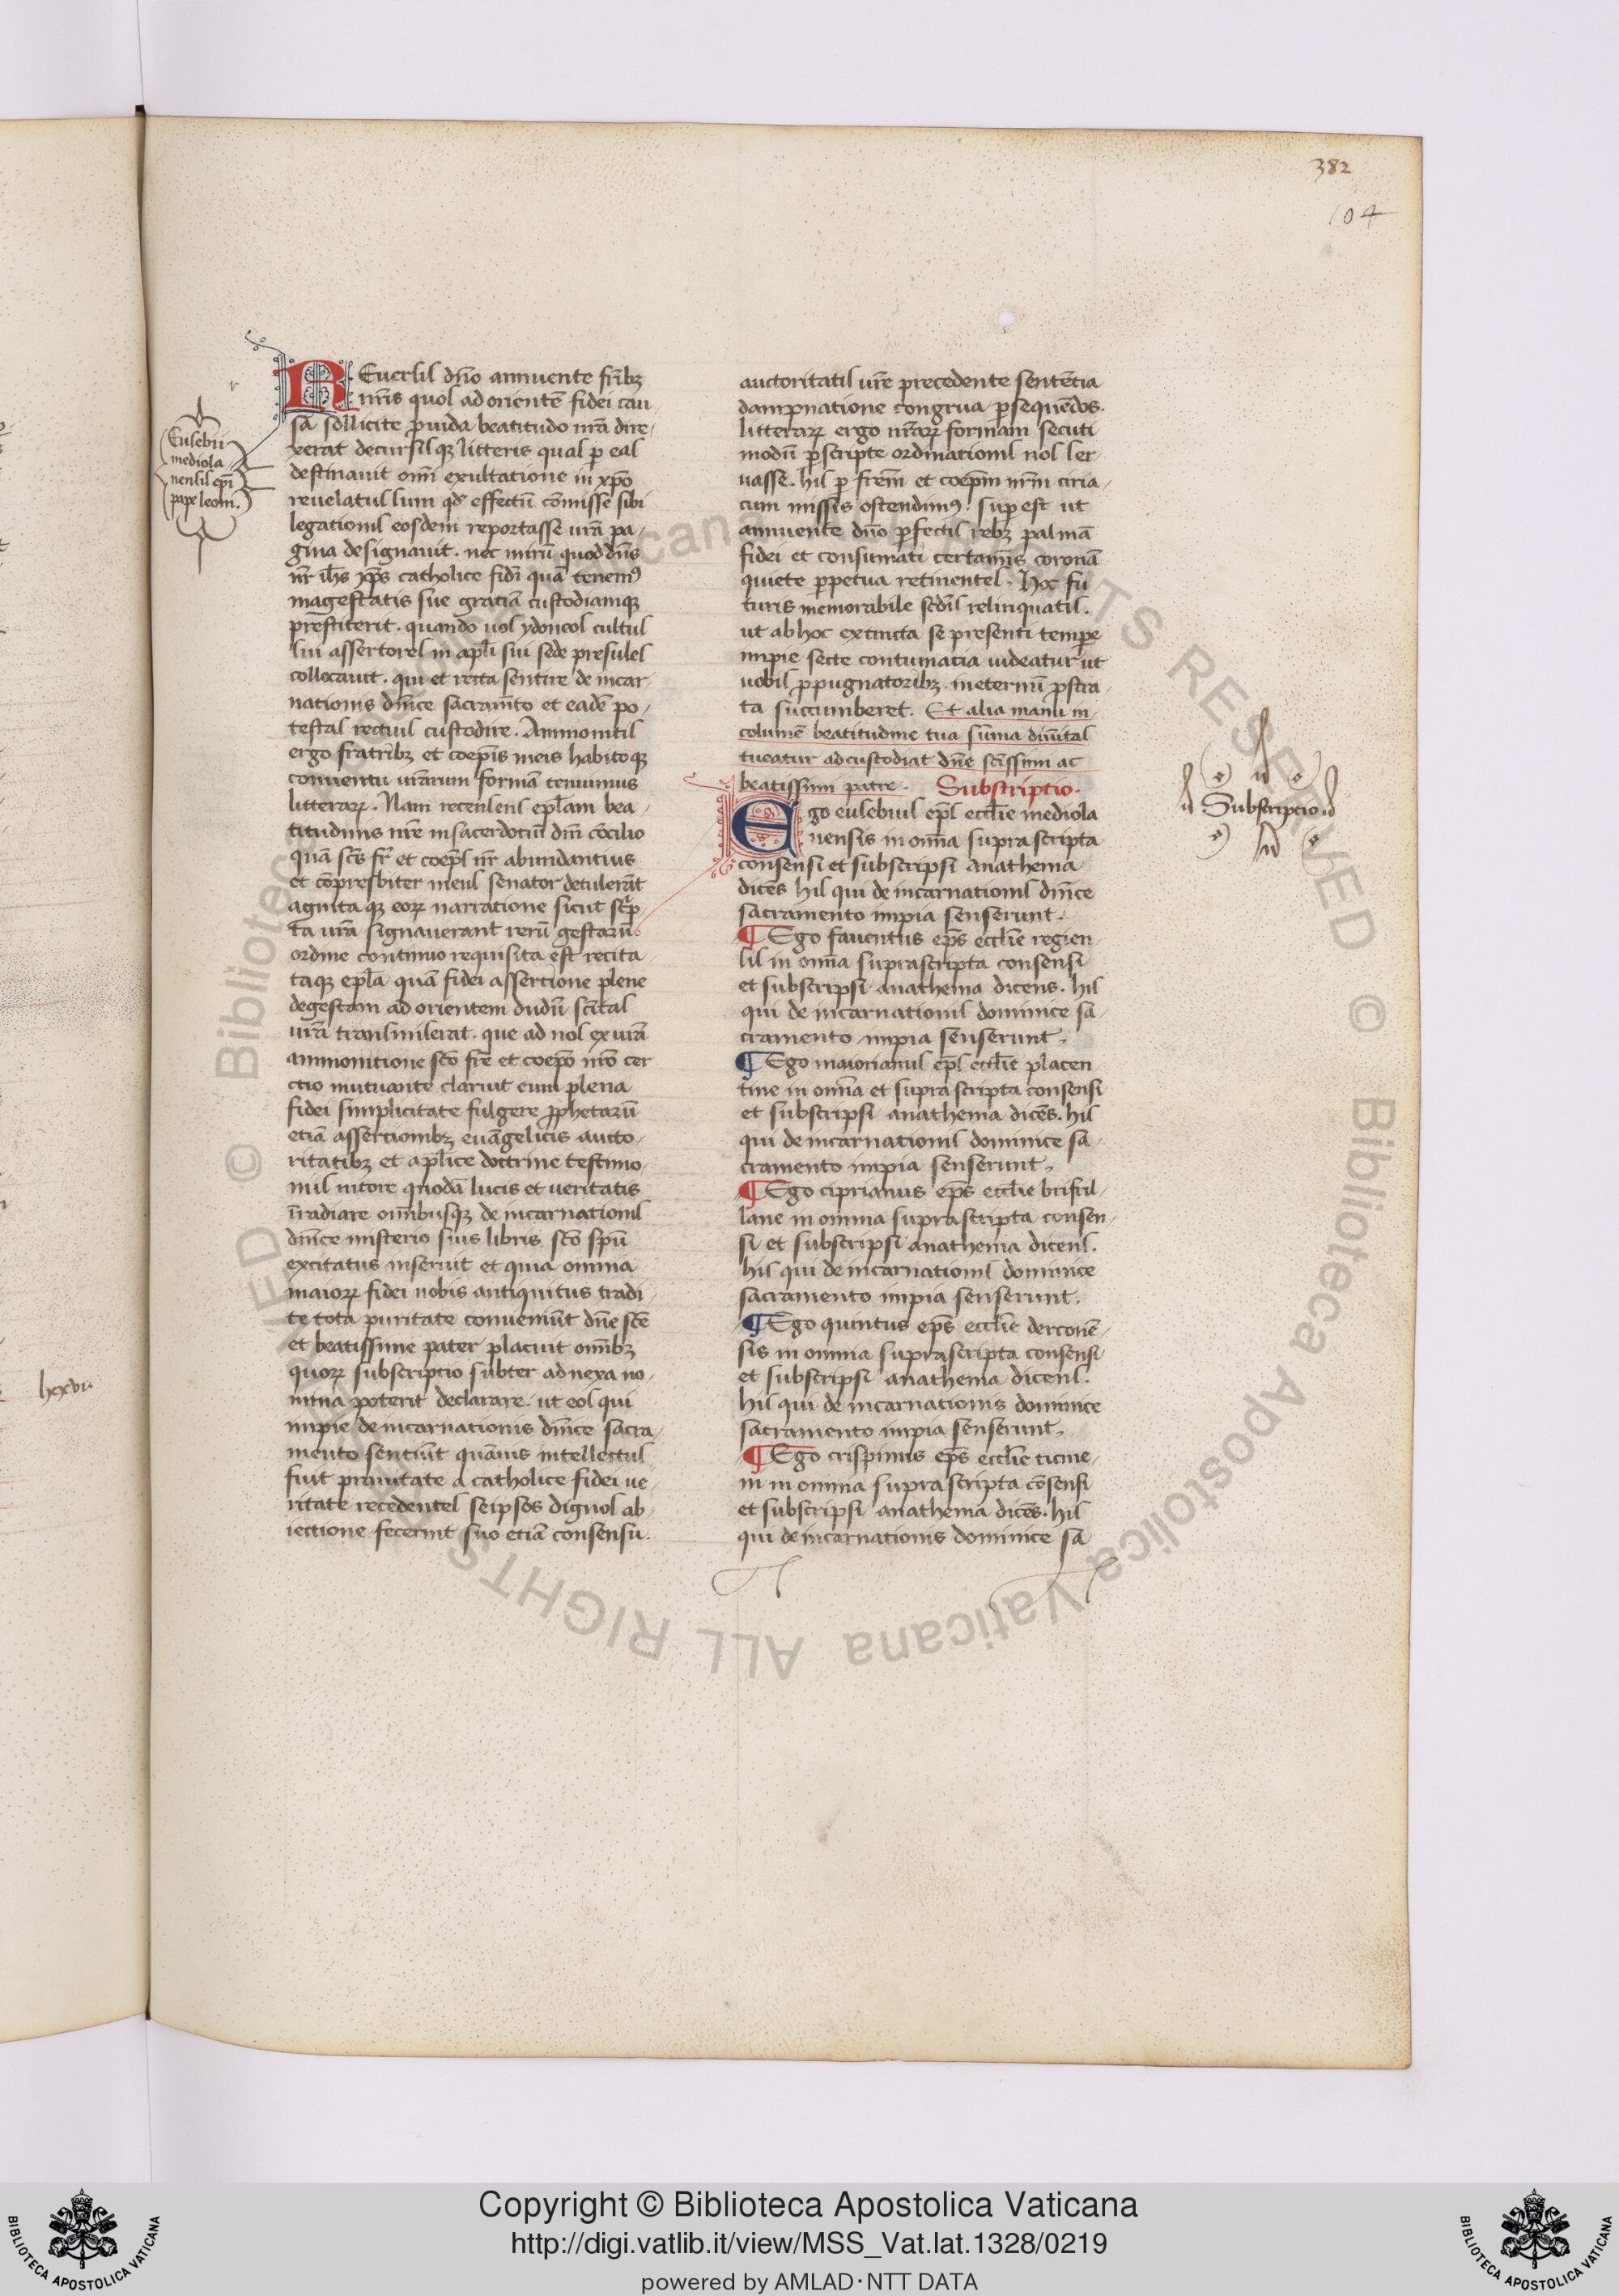 382
104
Eusebii
mediola
nensis ep̄i
pape leoni.
REuersis dn̄o annuente fr̄ibꝫ
nr̄is quos ad orientē fidei cau-
sā sollicite ꝓuida beatitudo urā dire-
xerat decursisqꝫ litteris quas ꝑ eas
destinauit om̄i exultatione in xp̄o
reuelatus sum qd̄ effectū cōmisse sibi
legationis eosdem reportasse urā pa-
gina designauit. nec mirū quod dn̄s
nr̄ ih̄s xp̄s catholice fidī quā tenemꝰ
magestatis sue gratiā custodiamqꝫ
prestiterit. quando uos ydoneos cultus
sui assertores in apl̄i sui sede presules
collocauit. qui et recta sentire de incar-
nationis dn̄ice sacram̄to et eadē po-
testas rectius custodire. Ammonitis
ergo fratribꝫ et coep̄is meis habitoqꝫ
conuentu urārum formā tenuimus
litterarꝝ. Nam recensens epl̄am bea-
titudinis ur̄e in sacerdotū dn̄i cōcilio
quā sc̄s fr̄ et coep̄s nr̄ abundantius
et cōpresbiter meus senator detulerāt
agnitaqꝫ eorꝝ narratione sicut sc̄p-
ta urā signauerant rerū gestarū
ordine continuo requisita est recita
taqꝫ epl̄a quā fidei assertione plene
degestam ad orientem dudū sc̄itas
urā transmiserat. que ad nos ex urā
ammonitione sc̄o fr̄e et coep̄o nr̄o cer
etio mutuante claruit eum plena
fidei simplicitate fulgere ꝓphetarū
etiā assertionibꝫ euāgelicis aucto-
ritatibꝫ et apl̄ice doctrine testimo-
niis nitore quodā lucis et ueritatis
īradiare omībusqꝫ de incarnationis
dn̄ice misterio suis libris sc̄o sp̄u
excitatus inseruit et quia omnia
maiorꝝ fidei nobis antiquitus tradi-
te tota puritate conueniūt dn̄e sc̄e
et beatissime pater placuit omībꝫ
quorꝝ subscriptio subter adnexa no-
mina poterit declarare. ut eos qui
impie de incarnationis dn̄ice sacra-
mento sentiūt quāuis intellectus
sint prauitate a catholice fidei ue-
ritate recedentes seipsos dignos ab-
iectione fecerint suo etiā consensu.
auctoritatis ur̄e precedente sentētia
dampnatione congrua ꝑsequēdos.
litterarꝝ ergo ur̄arꝝ formam secuti
modū ꝑscripte ordinationis nos ser-
uasse. his ꝑ frēm et coep̄m nr̄m ciria-
cum missis ostendimꝰ. suꝑest ut
annuente dn̄o ꝑfectis rebꝫ palmā
fidei et consumati certam̄is coronā
quiete ꝑpetua retinentes. hoc fu
turis memorabile sc̄dis relinquatis.
ut ab hoc extincta se presenti tempe
impie secte contumacia uideatur ut
uobis ꝓpugnatoribꝫ. ineternū ꝓstra-
ta succumberet. Et alia manu in-
columē beatitudine tua sūma diuītas
tueatur ad custodiat dn̄e sc̄issim ac
beatissim patre. Subscriptio.
Subscriptio
Ego eusebius ep̄s eccl̄ie mediola
nensis in omīa supra scripta
consensi et subscripsi anathema
dicēs his qui de incarnationis dn̄ice
sacramento impia senserunt.
¶ Ego fauentius ep̄s eccl̄ie regien-
sis in omīa suprascripta consensi
et subscripsi anathema dicens. his
qui de incarnationis dominice sa-
cramento impia senserunt.
¶ Ego maiorianus ep̄s eccl̄ie placen-
tine in omīa et supra scripta consensi
et subscripsi anathema dicēs. his
qui de incarnationis dominice sa-
cramento impia senserunt.
¶ Ego ciprianus ep̄s eccl̄ie brixil-
lane in omnia suprascripta consen-
si et subscripsi anathema dicens.
his qui de incarnationis dominice
sacramento impia senserunt.
¶ Ego quintus ep̄s eccl̄ie derconē-
sis in omnia suprascripta consensi
et subscripsi anathema dicens.
his qui de incarnationis dominice
sacramento impia senserunt.
¶ Ego crispinus ep̄s eccl̄ie ticine-
ni in omnia suprascripta cōsensi
et subscripsi anathema dicēs. his
qui de incarnationis dominice sa
Copyright © Biblioteca Apostolica Vaticana
http://digi.vatlib.it/view/MSS_Vat.lat.1328/0219
powered by AMLAD·NTT DATA
BIBLIOTECA APOSTOLICA VATICANA
BIBLIOTECA APOSTOLICA VATICANA
© Biblioteca Apostolica Vaticana ALL RIGHTS RESERVED